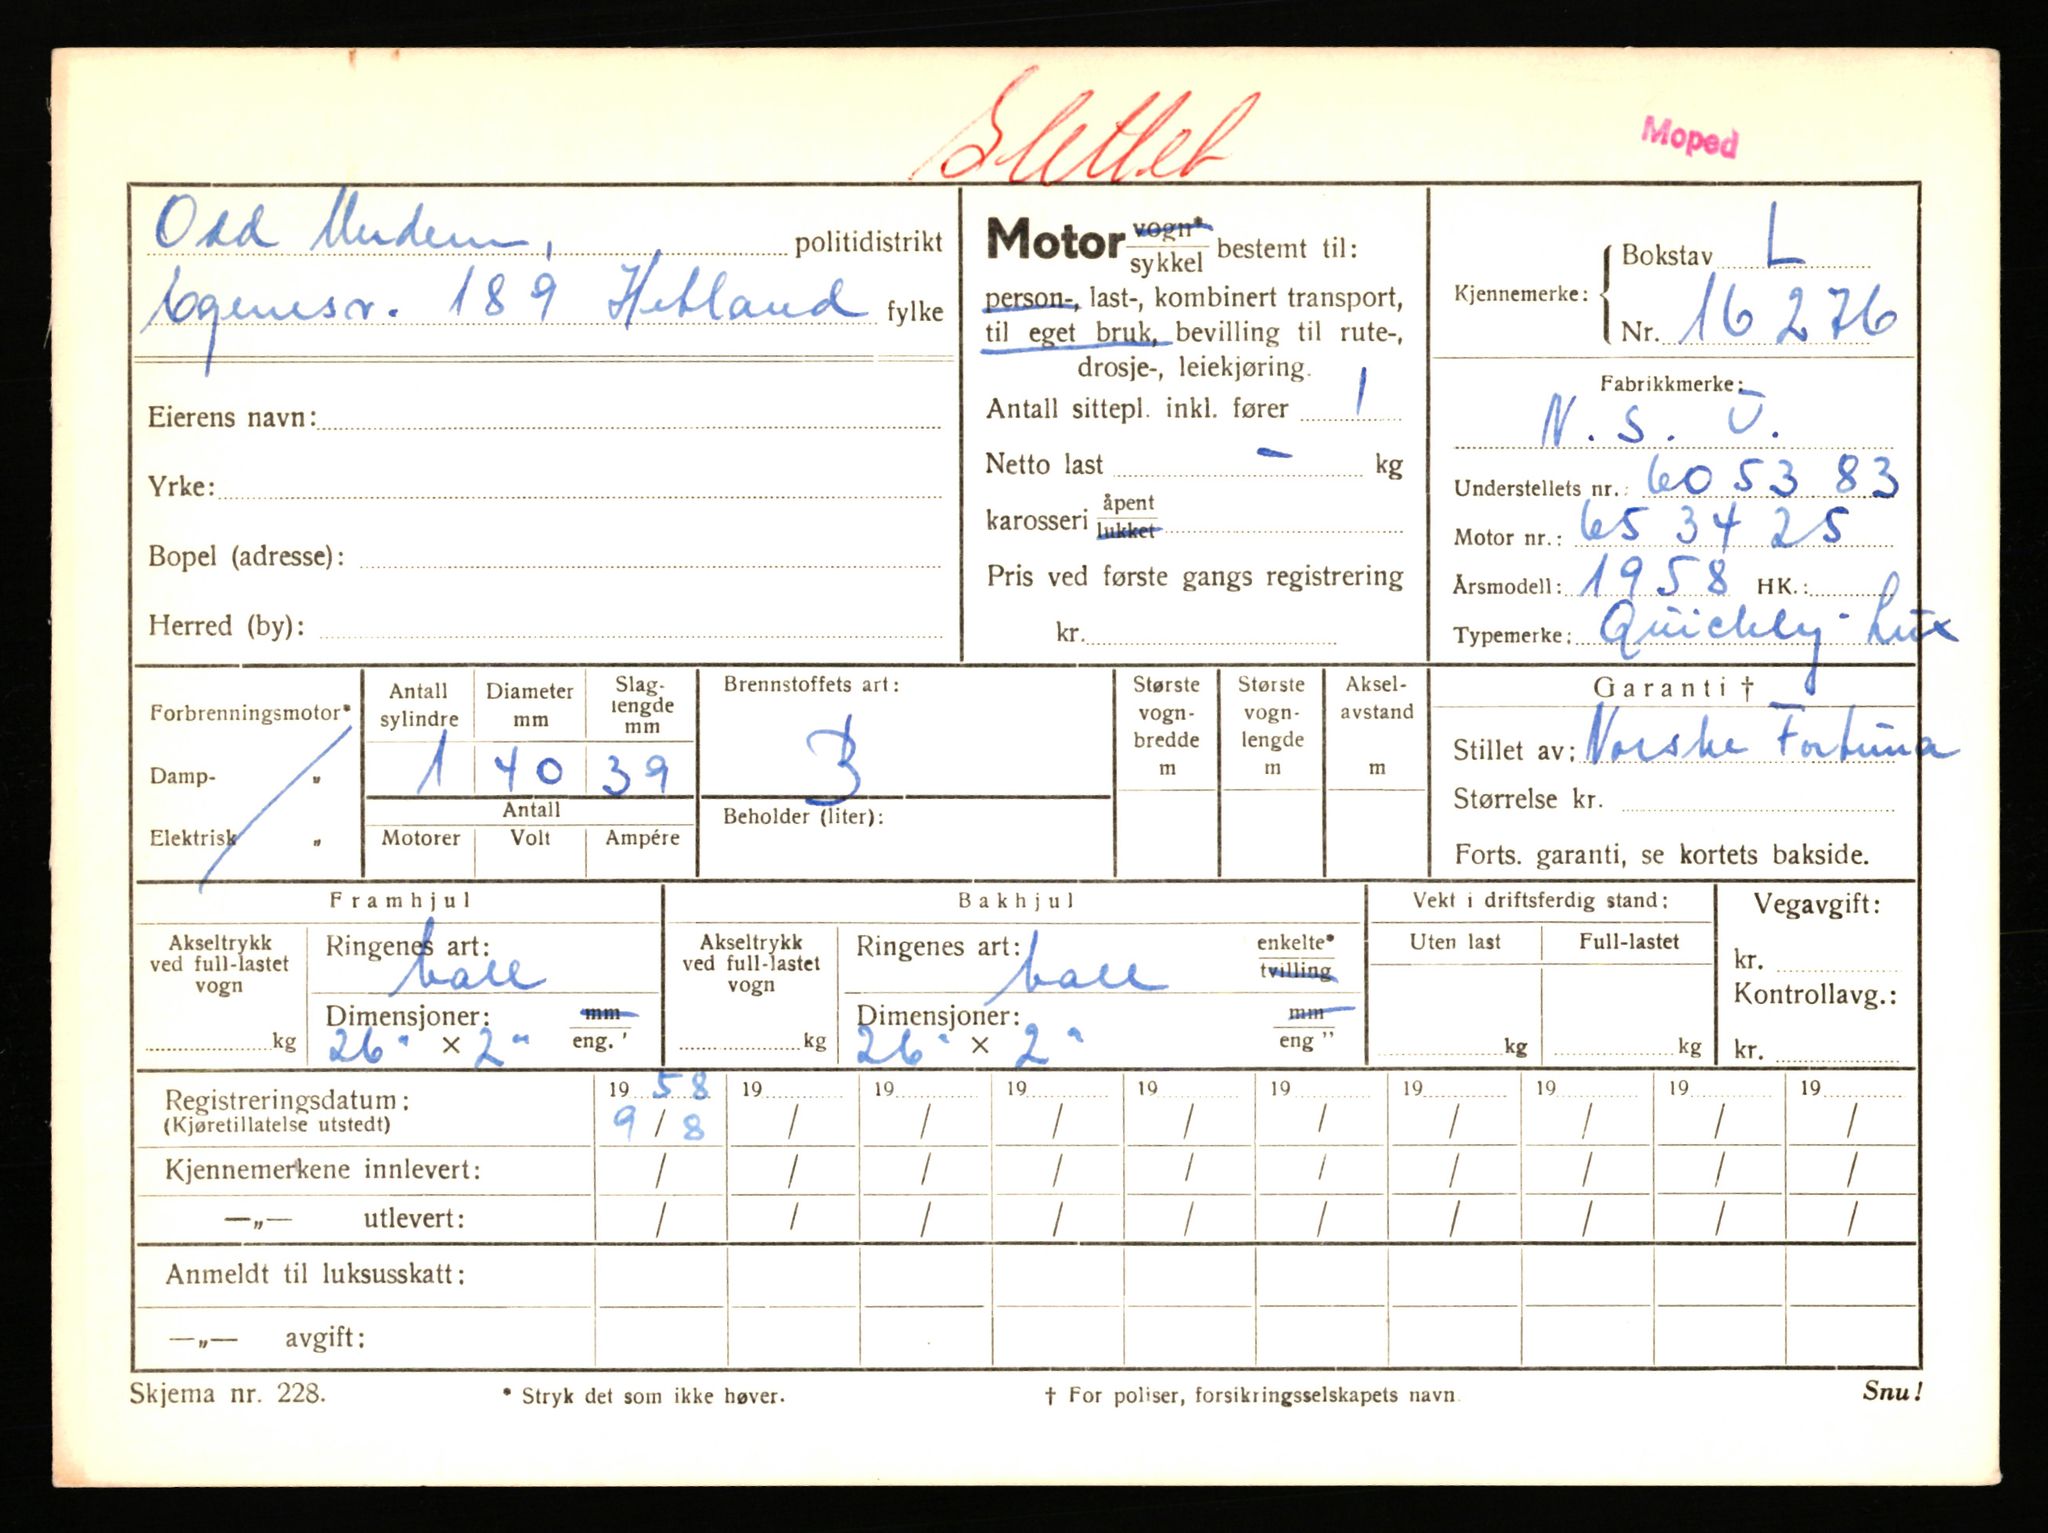 Slettet
Moped
Odd politidistrikt
189 Hetland fylke
Eierens navn:
Yrke:
Bopel (adresse):
Herred (by):
Motor vogn* sykkel bestemt til:
person-, last-, kombinert transport,
til eget bruk, bevilling til rute-,
drosje-, leiekjøring.
Antall sittepl. inkl. fører 1
Netto last - kg
karosseri åpent lukket
Pris ved første gangs registrering
kr.
Kjennemerke: Bokstav L
Nr. 16276
Fabrikkmerke:
N.S.U.
Understellets nr.: 605383
Motor nr.: 653425
Årsmodell: 1958 HK.:
Typemerke: Quickly-Lux
Forbrenningsmotor*
Damp- „
Elektrisk „
Antall sylindre
Diameter mm
Slag- lengde mm
1 40 39
Antall
Motorer Volt Ampére
Brennstoffets art:
B
Beholder (liter):
Største vogn- bredde m
Største vogn- lengde m
Aksel- avstand m
Garanti †
Stillet av: Norske Fortuna
Størrelse kr.
Forts. garanti, se kortets bakside.
Framhjul
Akseltrykk ved full-lastet vogn
kg
Ringenes art:
ball
Dimensjoner: mm
26" × 2" eng. '
Bakhjul
Akseltrykk ved full-lastet vogn
kg
Ringenes art: enkelte*
ball tvilling
Dimensjoner: mm
26" × 2" eng "
Vekt i driftsferdig stand:
Uten last Full-lastet
kg kg
Vegavgift:
kr.
Kontrollavg.:
kr.
Registreringsdatum: 1958 19 19 19 19 19 19 19 19 19
(Kjøretillatelse utstedt) 9/8 / / / / / / / / /
Kjennemerkene innlevert: / / / / / / / / / /
—„— utlevert: / / / / / / / / / /
Anmeldt til luksusskatt:
—„— avgift:
Skjema nr. 228. * Stryk det som ikke høver. † For poliser, forsikringsselskapets navn. Snu!